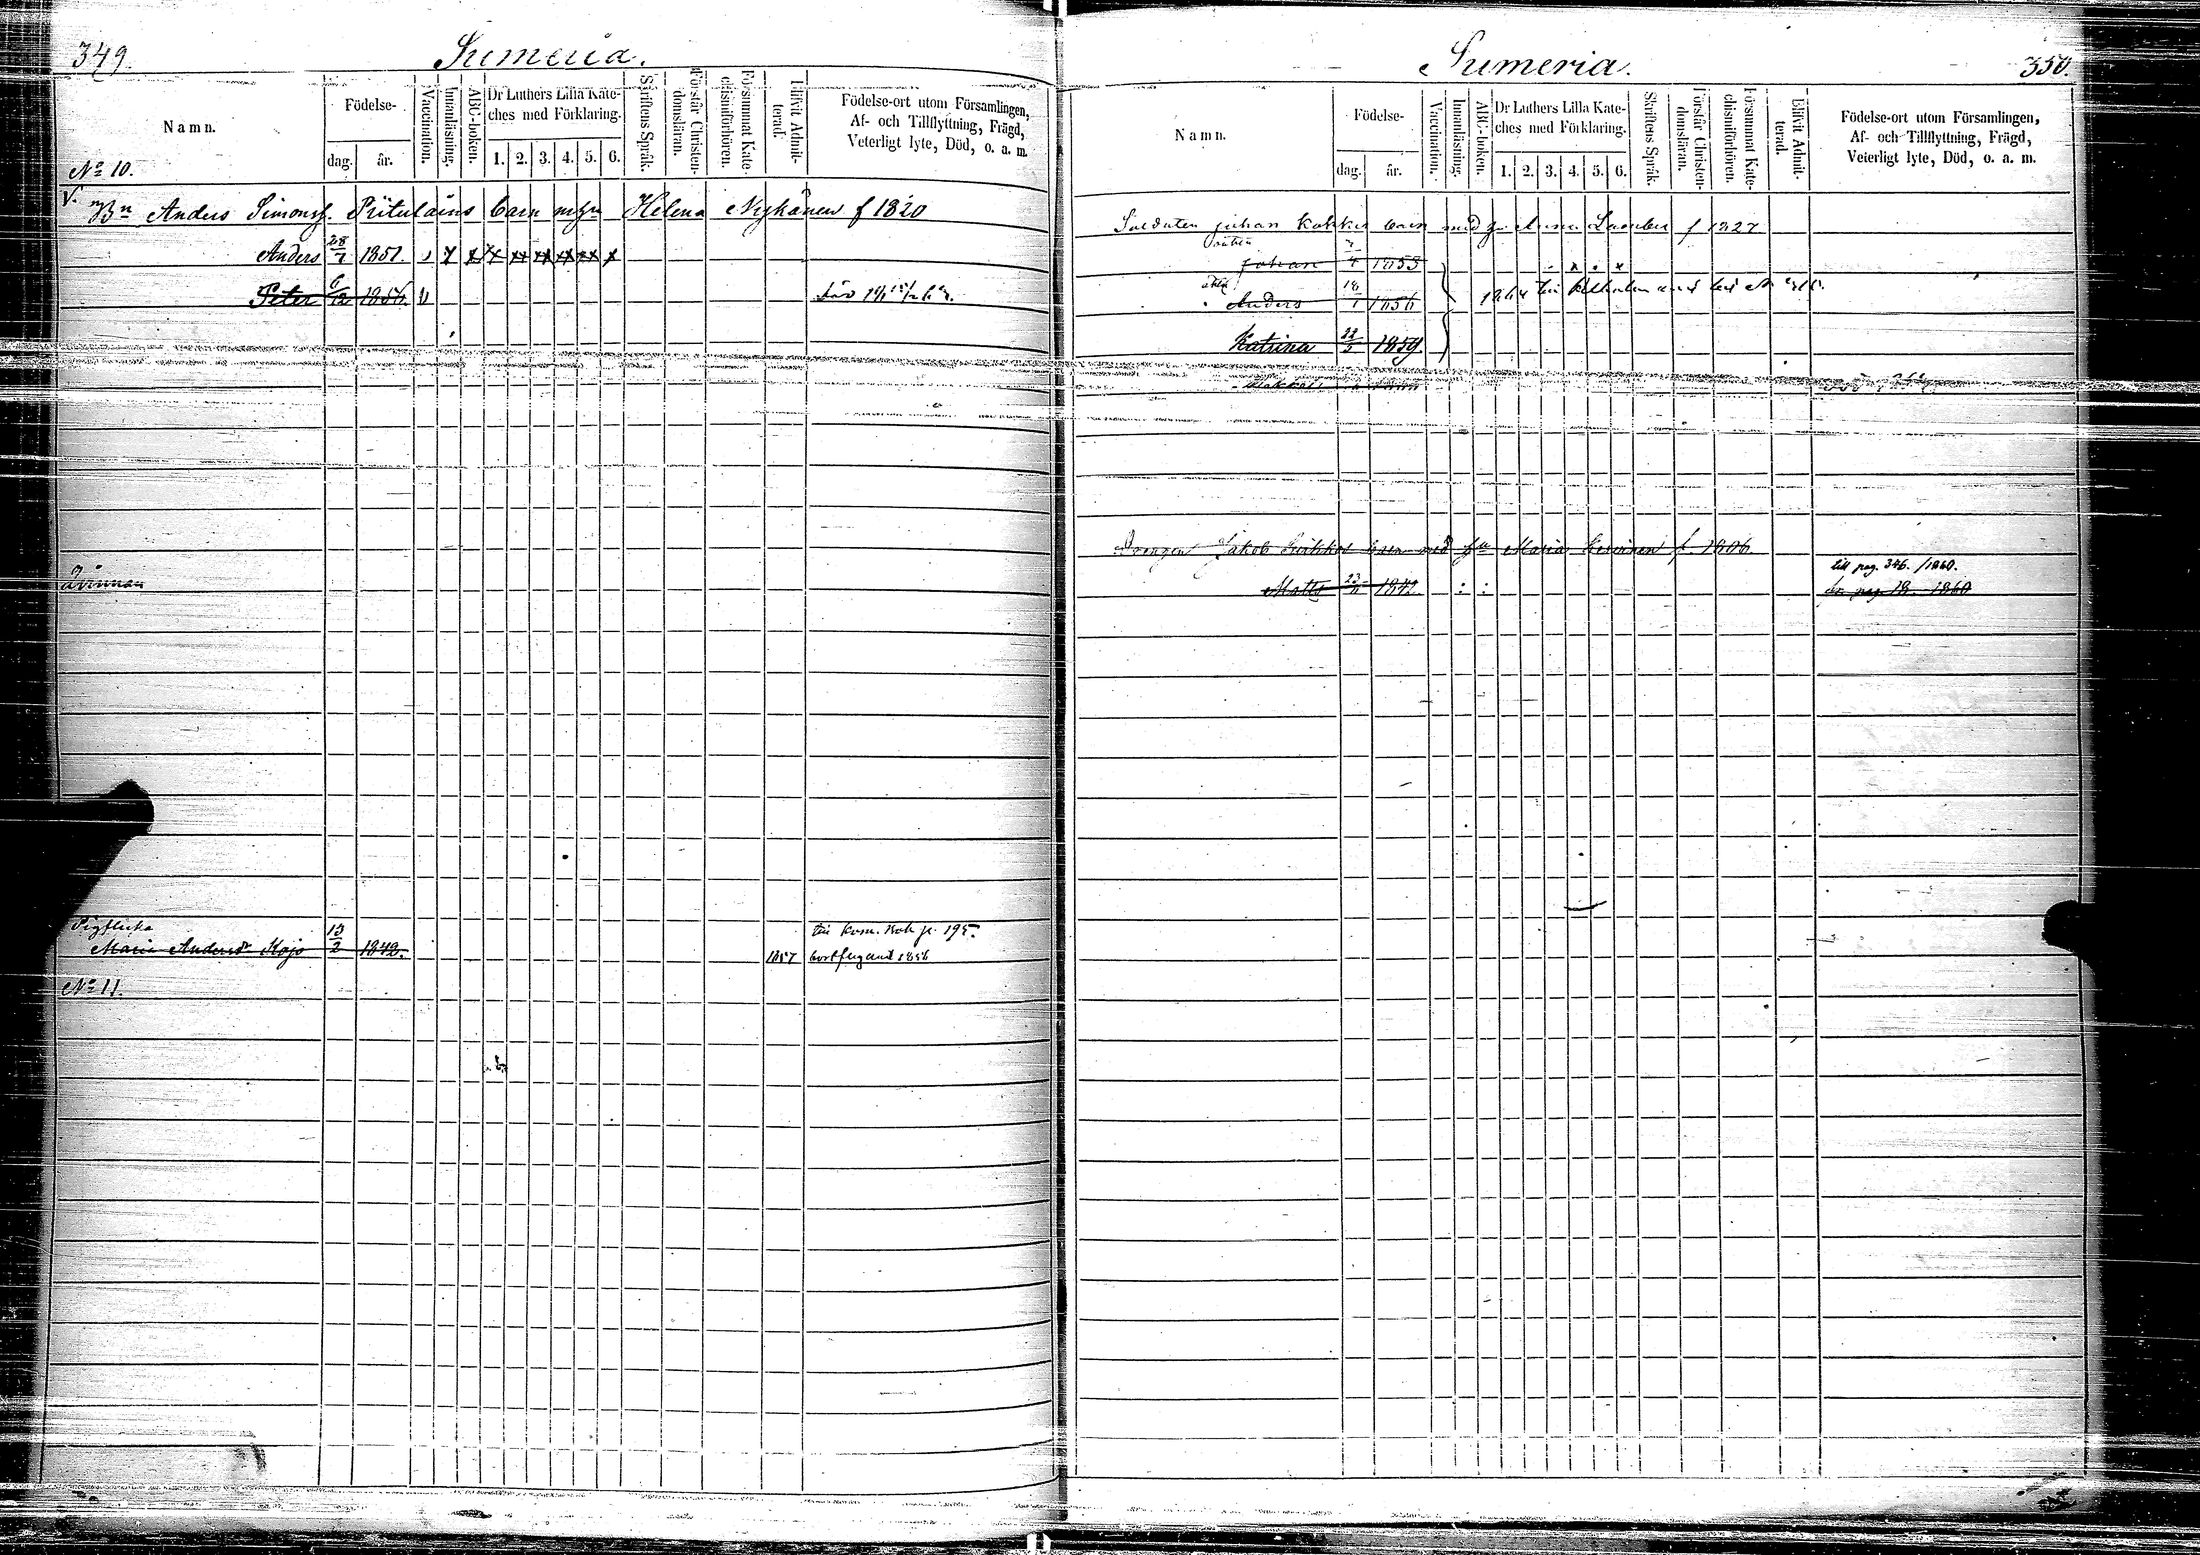 349.
Sumeria.
Namn.
Födelse-
dag.
år.
Vaccination.
Innanläsning.
ABC-boken.
Dr Luthers Lilla Kate-
ches med Förklaring.
1. 2. 3. 4. 5. 6.
Skriftens Språk.
Förstår Christen-
domsläran.
Försummat Kate-
chismiförhören.
Blifvit Admit-
terad.
Födelse-ort utom Församlingen,
Af- och Tillflyttning, Frägd,
Veterligt lyte, Död, o. a. m.
No 10.
V.
Bn Anders Simonsf. Pitulains barn m hu Helena Nyhänen f 1820
Anders 28/7 1851.
Peter 6/12 1856
Pigflicka
Maria Andersdr Kojo 13/2 1842. 1857 bortflygand 1856
till kom. bok p. 195.
No 11.
Sumeria.
350.
Namn.
Födelse-
dag.
år.
Vaccination.
Innanläsning.
ABC-boken.
Dr Luthers Lilla Kate-
ches med Förklaring.
1. 2. 3. 4. 5. 6.
Skriftens Språk.
Förstår Christen-
domsläran.
Försummat Kate-
chismiförhören.
Blifvit Admit-
terad.
Födelse-ort utom Församlingen,
Af- och Tillflyttning, Frägd,
Veterligt lyte, Död, o. a. m.
Soldaten Johan Kokkos barn med hu Anna f 1827
Johan 1853
Anders 18/1 1856
Katrina 22/5 1859
Drengen Jakob barn med hu Maria f 1806.
till pag. 346. /1860.
Matts 23/11 1842 : : pag. 18. 1860